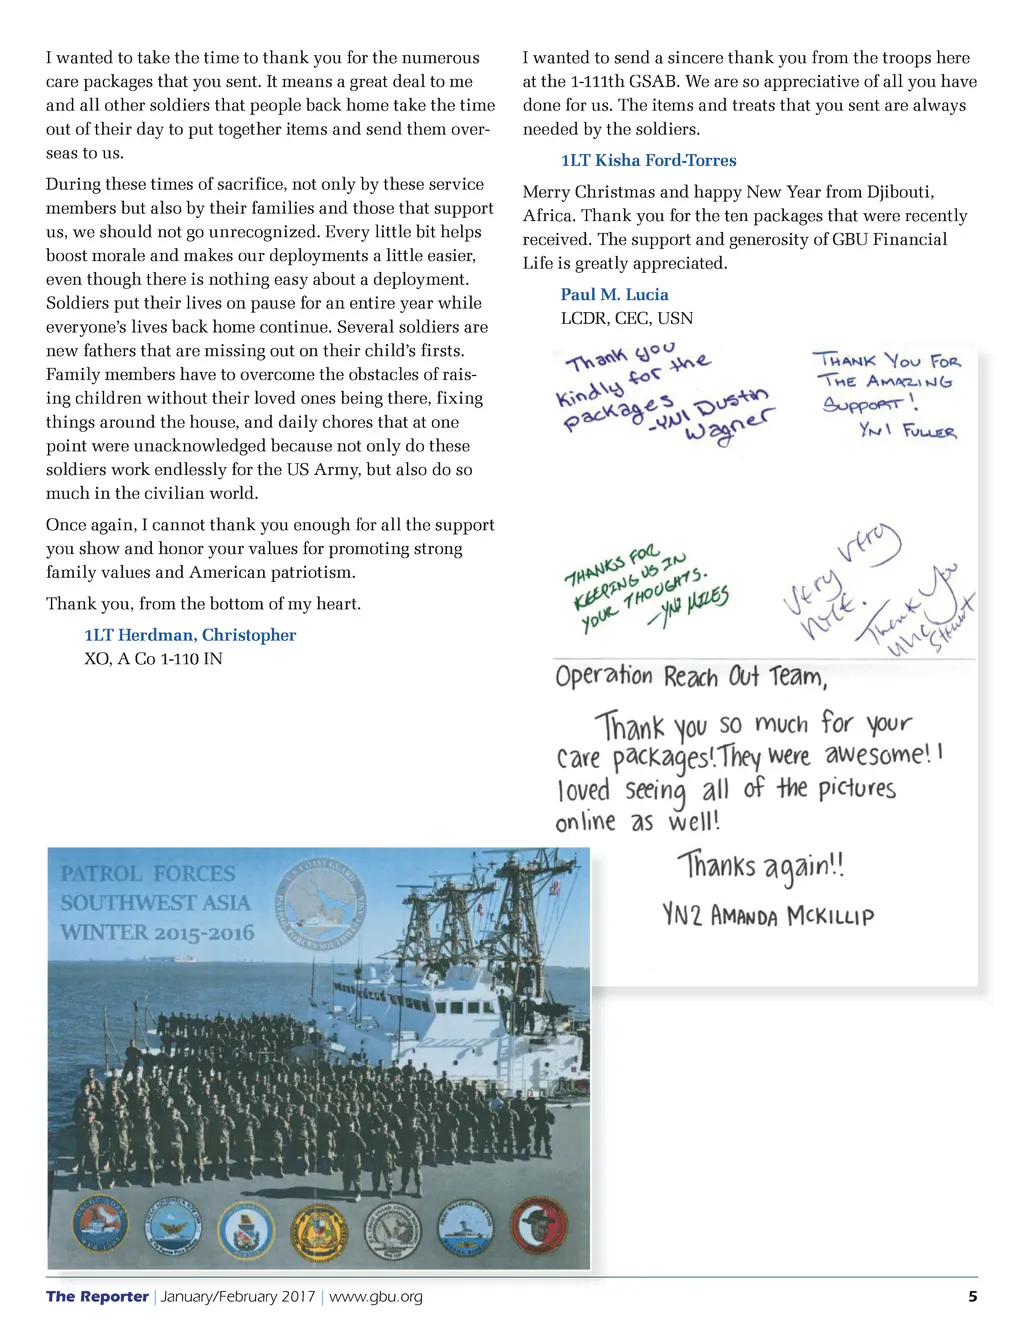 I wanted to take the time to thank you for the numerous
care packages that you sent. It means a great deal to me
and all other soldiers that people back home take the time
out of their day to put together items and send them over-
seas to us.
During these times of sacrifice, not only by these service
members but also by their families and those that support
us, we should not go unrecognized. Every little bit helps
boost morale and makes our deployments a little easier,
even though there is nothing easy about a deployment.
Soldiers put their lives on pause for an entire year while
everyone's lives back home continue. Several soldiers are
new fathers that are missing out on their child's firsts.
Family members have to overcome the obstacles of rais-
ing children without their loved ones being there, fixing
things around the house, and daily chores that at one
point were unacknowledged because not only do these
soldiers work endlessly for the US Army, but also do so
much in the civilian world.
Once again, I cannot thank you enough for all the support
you show and honor your values for promoting strong
family values and American patriotism.
Thank you, from the bottom of my heart.
1LT Herdman, Christopher
XO, A Co 1-110 IN
I wanted to send a sincere thank you from the troops here
at the 1-111th GSAB. We are so appreciative of all you have
done for us. The items and treats that you sent are always
needed by the soldiers.
1LT Kisha Ford-Torres
Merry Christmas and happy New Year from Djibouti,
Africa. Thank you for the ten packages that were recently
received. The support and generosity of GBU Financial
Life is greatly appreciated.
Paul M. Lucia
LCDR, CEC, USN
Thank you
kindly for the
packages
-YN1 Dustin
Wagner
THANK YOU FOR
THE AMAZING
SUPPORT!
YN1 FULLER
THANKS FOR
KEEPING US IN
YOUR THOUGHTS.
-YN2 MILES
Very Very
Nice.
Thank You
Stewart
Operation Reach Out Team,
Thank you so much for your
care packages! They were awesome! I
loved seeing all of the pictures
online as well!
Thanks again!!
YN2 AMANDA MCKILLIP
PATROL FORCES
SOUTHWEST ASIA
WINTER 2015-2016
U.S. COAST GUARD
PATROL FORCES SOUTHWEST ASIA
The Reporter | January/February 2017 | www.gbu.org
5